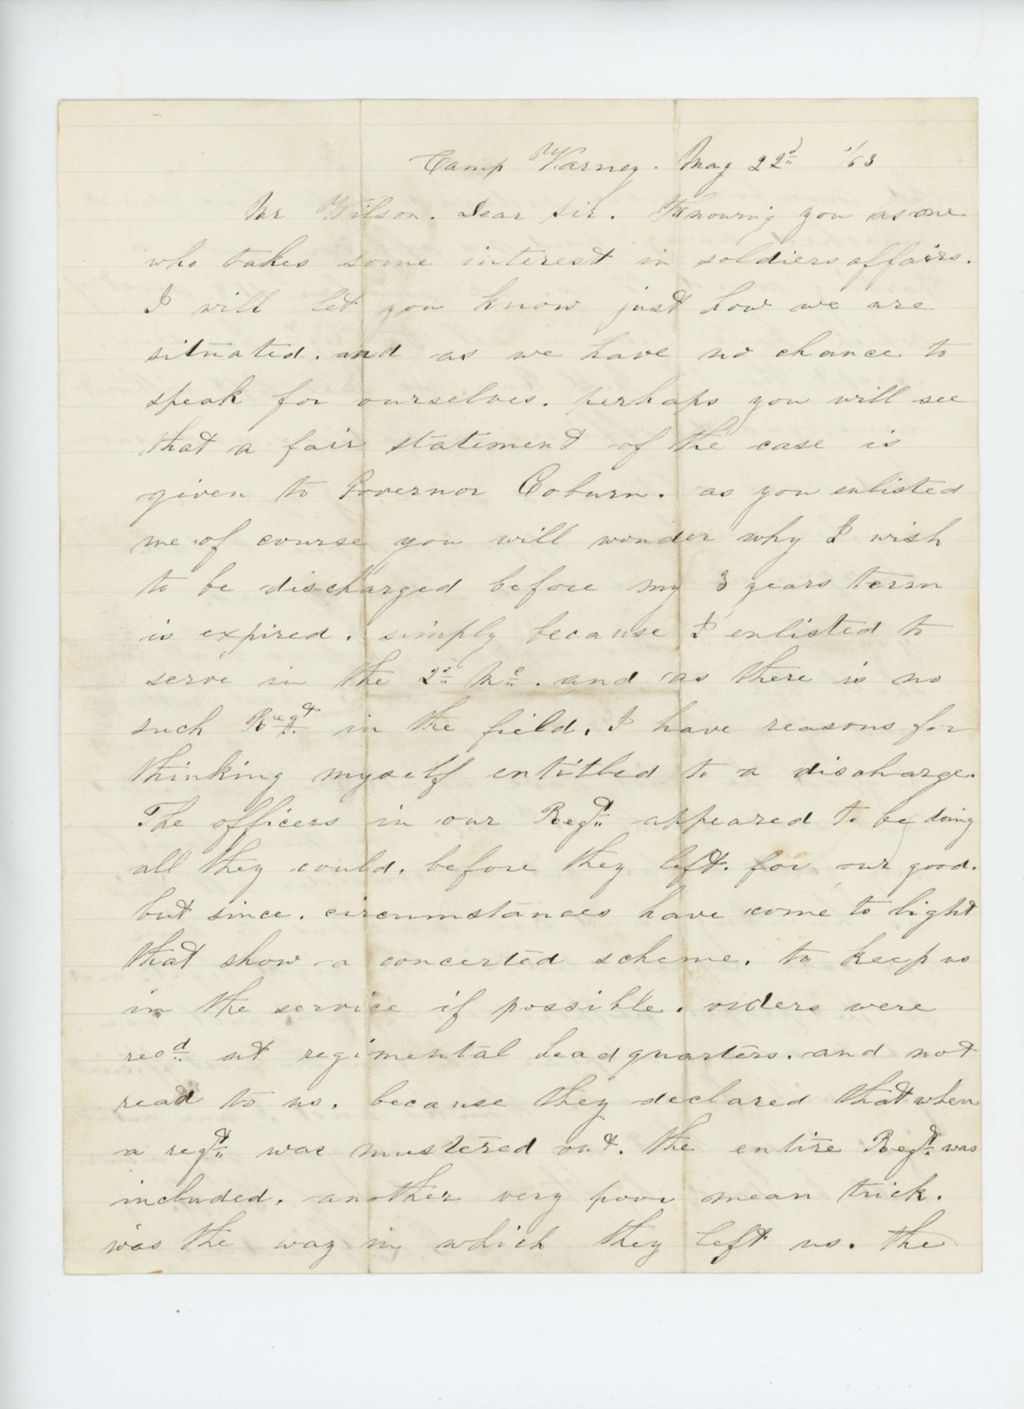 Camp Varney. May 22d /63
Mr Wilson. Dear Sir. Knowing you as one
who takes some interest in soldiers affairs.
I will let you know just how we are
situated. and as we have no chance to
speak for ourselves. perhaps you will see
that a fair statement of the case is
given to Governor Coburn. as you enlisted
me of course you will wonder why I wish
to be discharged before my 3 years term
is expired. simply because I enlisted to
serve in the 2d Me. and as there is no
such Regt in the field. I have reasons for
thinking myself entitled to a discharge.
The officers in our Regt appeared to be doing
all they could. before they left. for our good.
but since. circumstances have come to light
that show a concerted scheme. to keep us
in the service if possible. orders were
recd at regimental headquarters. and not
read to us. because they declared that when
a regt was mustered out. the entire Regt was
included. another very poor mean trick.
was the way in which they left us. the